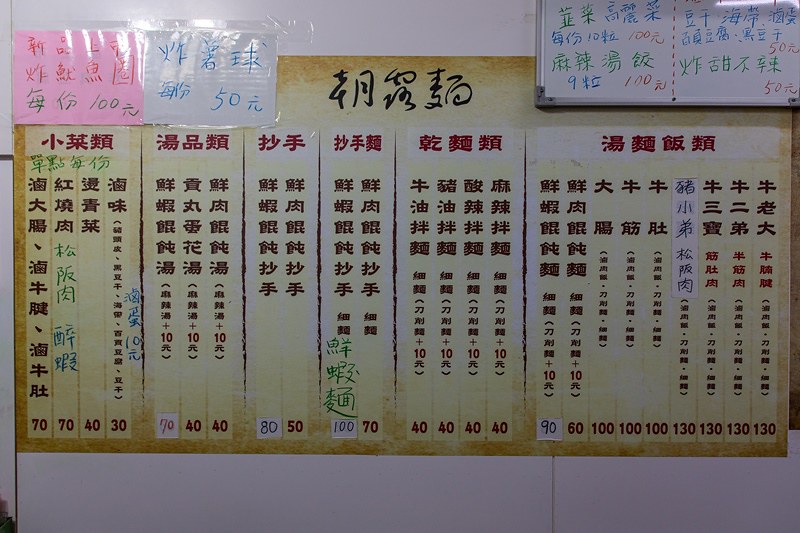 新品上市
炸魷魚圈
每份 100元
炸薯球
每份 50元
朝露麵
韮菜 高麗菜
每份10粒 100元
麻辣湯餃
9粒 100元
豆干 海帶 滷蛋
百頁豆腐、黑豆干
50元
炸甜不辣
50元
湯麵飯類
牛老大 牛腩腱 (滷肉飯、刀削麵、細麵) 130
牛二弟 半筋肉 (滷肉飯、刀削麵、細麵) 130
牛三寶 筋肚肉 (滷肉飯、刀削麵、細麵) 130
豬小弟 松阪肉 (滷肉飯、刀削麵、細麵) 130
牛肚 (滷肉飯、刀削麵、細麵) 100
牛筋 (滷肉飯、刀削麵、細麵) 100
大腸 (滷肉飯、刀削麵、細麵) 100
鮮肉餛飩麵 細麵 (刀削麵+10元) 60
鮮蝦餛飩麵 細麵 (刀削麵+10元) 90
乾麵類
麻辣拌麵 細麵 (刀削麵+10元) 40
酸辣拌麵 細麵 (刀削麵+10元) 40
豬油拌麵 細麵 (刀削麵+10元) 40
牛油拌麵 細麵 (刀削麵+10元) 40
抄手麵
鮮肉餛飩抄手 細麵 70
鮮蝦餛飩抄手 細麵 鮮蝦麵 100
抄手
鮮肉餛飩抄手 50
鮮蝦餛飩抄手 80
湯品類
鮮肉餛飩湯 (麻辣湯+10元) 40
貢丸蛋花湯 (麻辣湯+10元) 40
鮮蝦餛飩湯 (麻辣湯+10元) 70
小菜類
單點每份
滷味 (豬頭皮、黑豆干、海帶、百頁豆腐、豆干) 30
滷蛋10元
燙青菜 40
紅燒肉 松阪肉 醉蝦 70
滷大腸、滷牛腱、滷牛肚 70